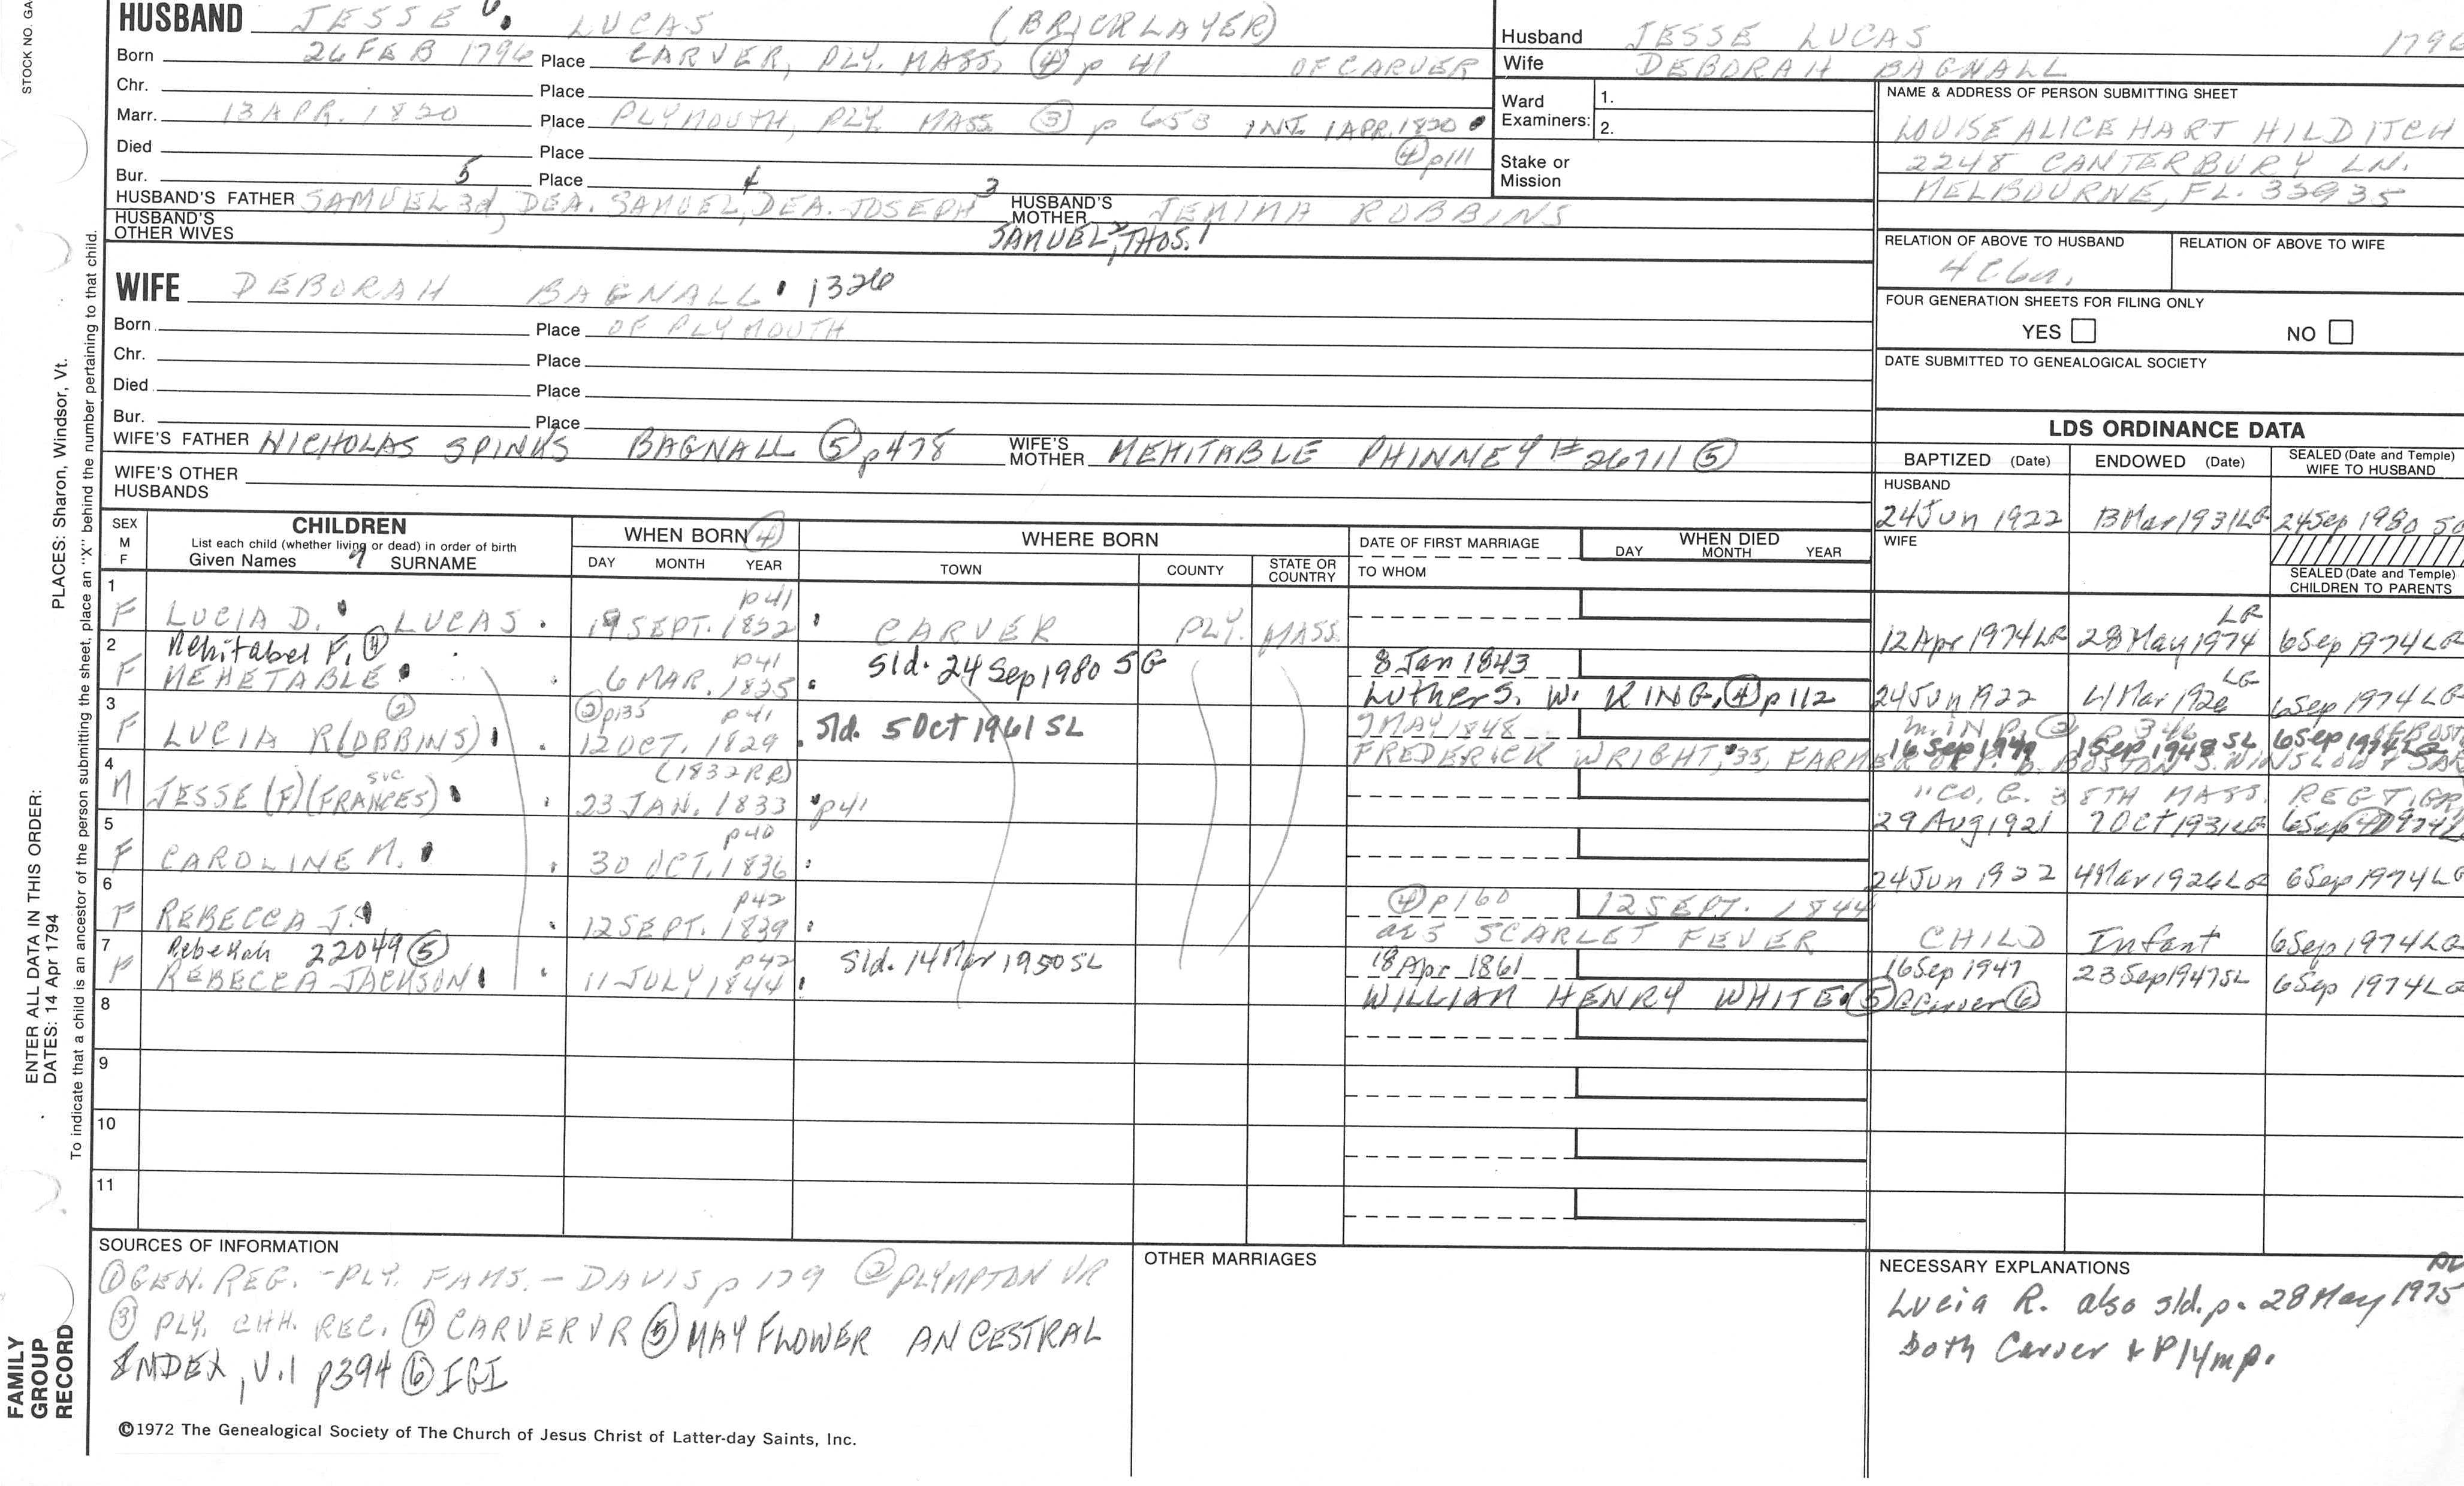 STOCK NO. GA
HUSBAND JESSE LUCAS (BRICKLAYER)
Born 26 FEB 1796 Place CARVER, PLY. MASS. ④ p 41 OF CARVER
Chr. Place
Marr. 13 APR. 1820 Place PLYMOUTH, PLY. MASS ③ p 653 INT. 1 APR. 1820
Died Place ④ p111
Bur. Place
5 4 3
HUSBAND'S FATHER SAMUEL 3d, DEA. SAMUEL, DEA. JOSEPH HUSBAND'S MOTHER JEMIMA ROBBINS
HUSBAND'S OTHER WIVES SAMUEL 2, THOS. 1
Husband JESSE LUCAS 1796
Wife DEBORAH BAGNALL
Ward Examiners: 1.
2.
Stake or Mission
NAME & ADDRESS OF PERSON SUBMITTING SHEET
LOUISE ALICE HART HILDITCH
2248 CANTERBURY LN.
MELBOURNE, FL. 32935
RELATION OF ABOVE TO HUSBAND RELATION OF ABOVE TO WIFE
FOUR GENERATION SHEETS FOR FILING ONLY
YES NO
DATE SUBMITTED TO GENEALOGICAL SOCIETY
WIFE DEBORAH BAGNALL 1326
Born Place OF PLYMOUTH
Chr. Place
Died Place
Bur. Place
WIFE'S FATHER NICHOLAS SPINKS BAGNALL ⑤ p478 WIFE'S MOTHER MEHITABLE PHINNEY # 26711 ⑤
WIFE'S OTHER HUSBANDS
LDS ORDINANCE DATA
BAPTIZED (Date) ENDOWED (Date) SEALED (Date and Temple) WIFE TO HUSBAND
HUSBAND
24 Jun 1922 13 Mar 1931 LG 24 Sep 1980 SG
WIFE
SEALED (Date and Temple) CHILDREN TO PARENTS
SEX M F CHILDREN WHEN BORN ④ WHERE BORN DATE OF FIRST MARRIAGE WHEN DIED
List each child (whether living or dead) in order of birth
Given Names SURNAME DAY MONTH YEAR TOWN COUNTY STATE OR COUNTRY TO WHOM DAY MONTH YEAR
1 p41
F LUCIA D. LUCAS 19 SEPT. 1822 CARVER PLY. MASS. 12 Apr 1974 LG 28 May 1974 LG 6 Sep 1974 LG
2 Mehitabel F. ④ p41 Sld. 24 Sep 1980 SG 8 Jan 1843
F MEHETABLE 6 MAR. 1825 Luther S. W. KING. ④ p112 24 Jun 1922 4 Mar 1926 LG 6 Sep 1974 LG
3 ② ② p135 p41 Sld. 5 Oct 1961 SL 7 MAY 1848 m. IN P. ② p 346
F LUCIA R(OBBINS) 12 OCT. 1829 FREDERICK WRIGHT, 35, FARMER 1 Sep 1948 SL 6 Sep 1974 LG
4 SVC (1832 RR)
M JESSE (F)(FRANCES) 23 JAN. 1833 p41 CO. G. 38TH MASS. REGT.
29 Aug 1921 7 Oct 1931 LG
5 p40
F CAROLINE M. 30 OCT. 1836 24 Jun 1922 4 Mar 1926 LG 6 Sep 1974 LG
6 p42 ④ p160 12 SEPT. 1844
F REBECCA J. 12 SEPT. 1839 ae 5 SCARLET FEVER CHILD Infant 6 Sep 1974 LG
7 Rebekah 22049 ⑤ p42 Sld. 14 Mar 1950 SL 18 Apr 1861
F REBECCA JACKSON 11 JULY 1844 WILLIAM HENRY WHITE. ⑤ @Carver ⑥ 16 Sep 1947 23 Sep 1947 SL 6 Sep 1974 LG
8
9
10
11
SOURCES OF INFORMATION
① GEN. REG. - PLY. FAMS. - DAVIS p 179 ② PLYMPTON VR
③ PLY. CHH. REC. ④ CARVER VR ⑤ MAYFLOWER ANCESTRAL
INDEX, V.1 p394 ⑥ IGI
OTHER MARRIAGES
NECESSARY EXPLANATIONS
Lucia R. also sld. p. 28 May 1975
both Carver & Plymp.
©1972 The Genealogical Society of The Church of Jesus Christ of Latter-day Saints, Inc.
FAMILY GROUP RECORD
ENTER ALL DATA IN THIS ORDER:
DATES: 14 Apr 1794
PLACES: Sharon, Windsor, Vt.
To indicate that a child is an ancestor of the person submitting the sheet, place an "X" behind the number pertaining to that child.